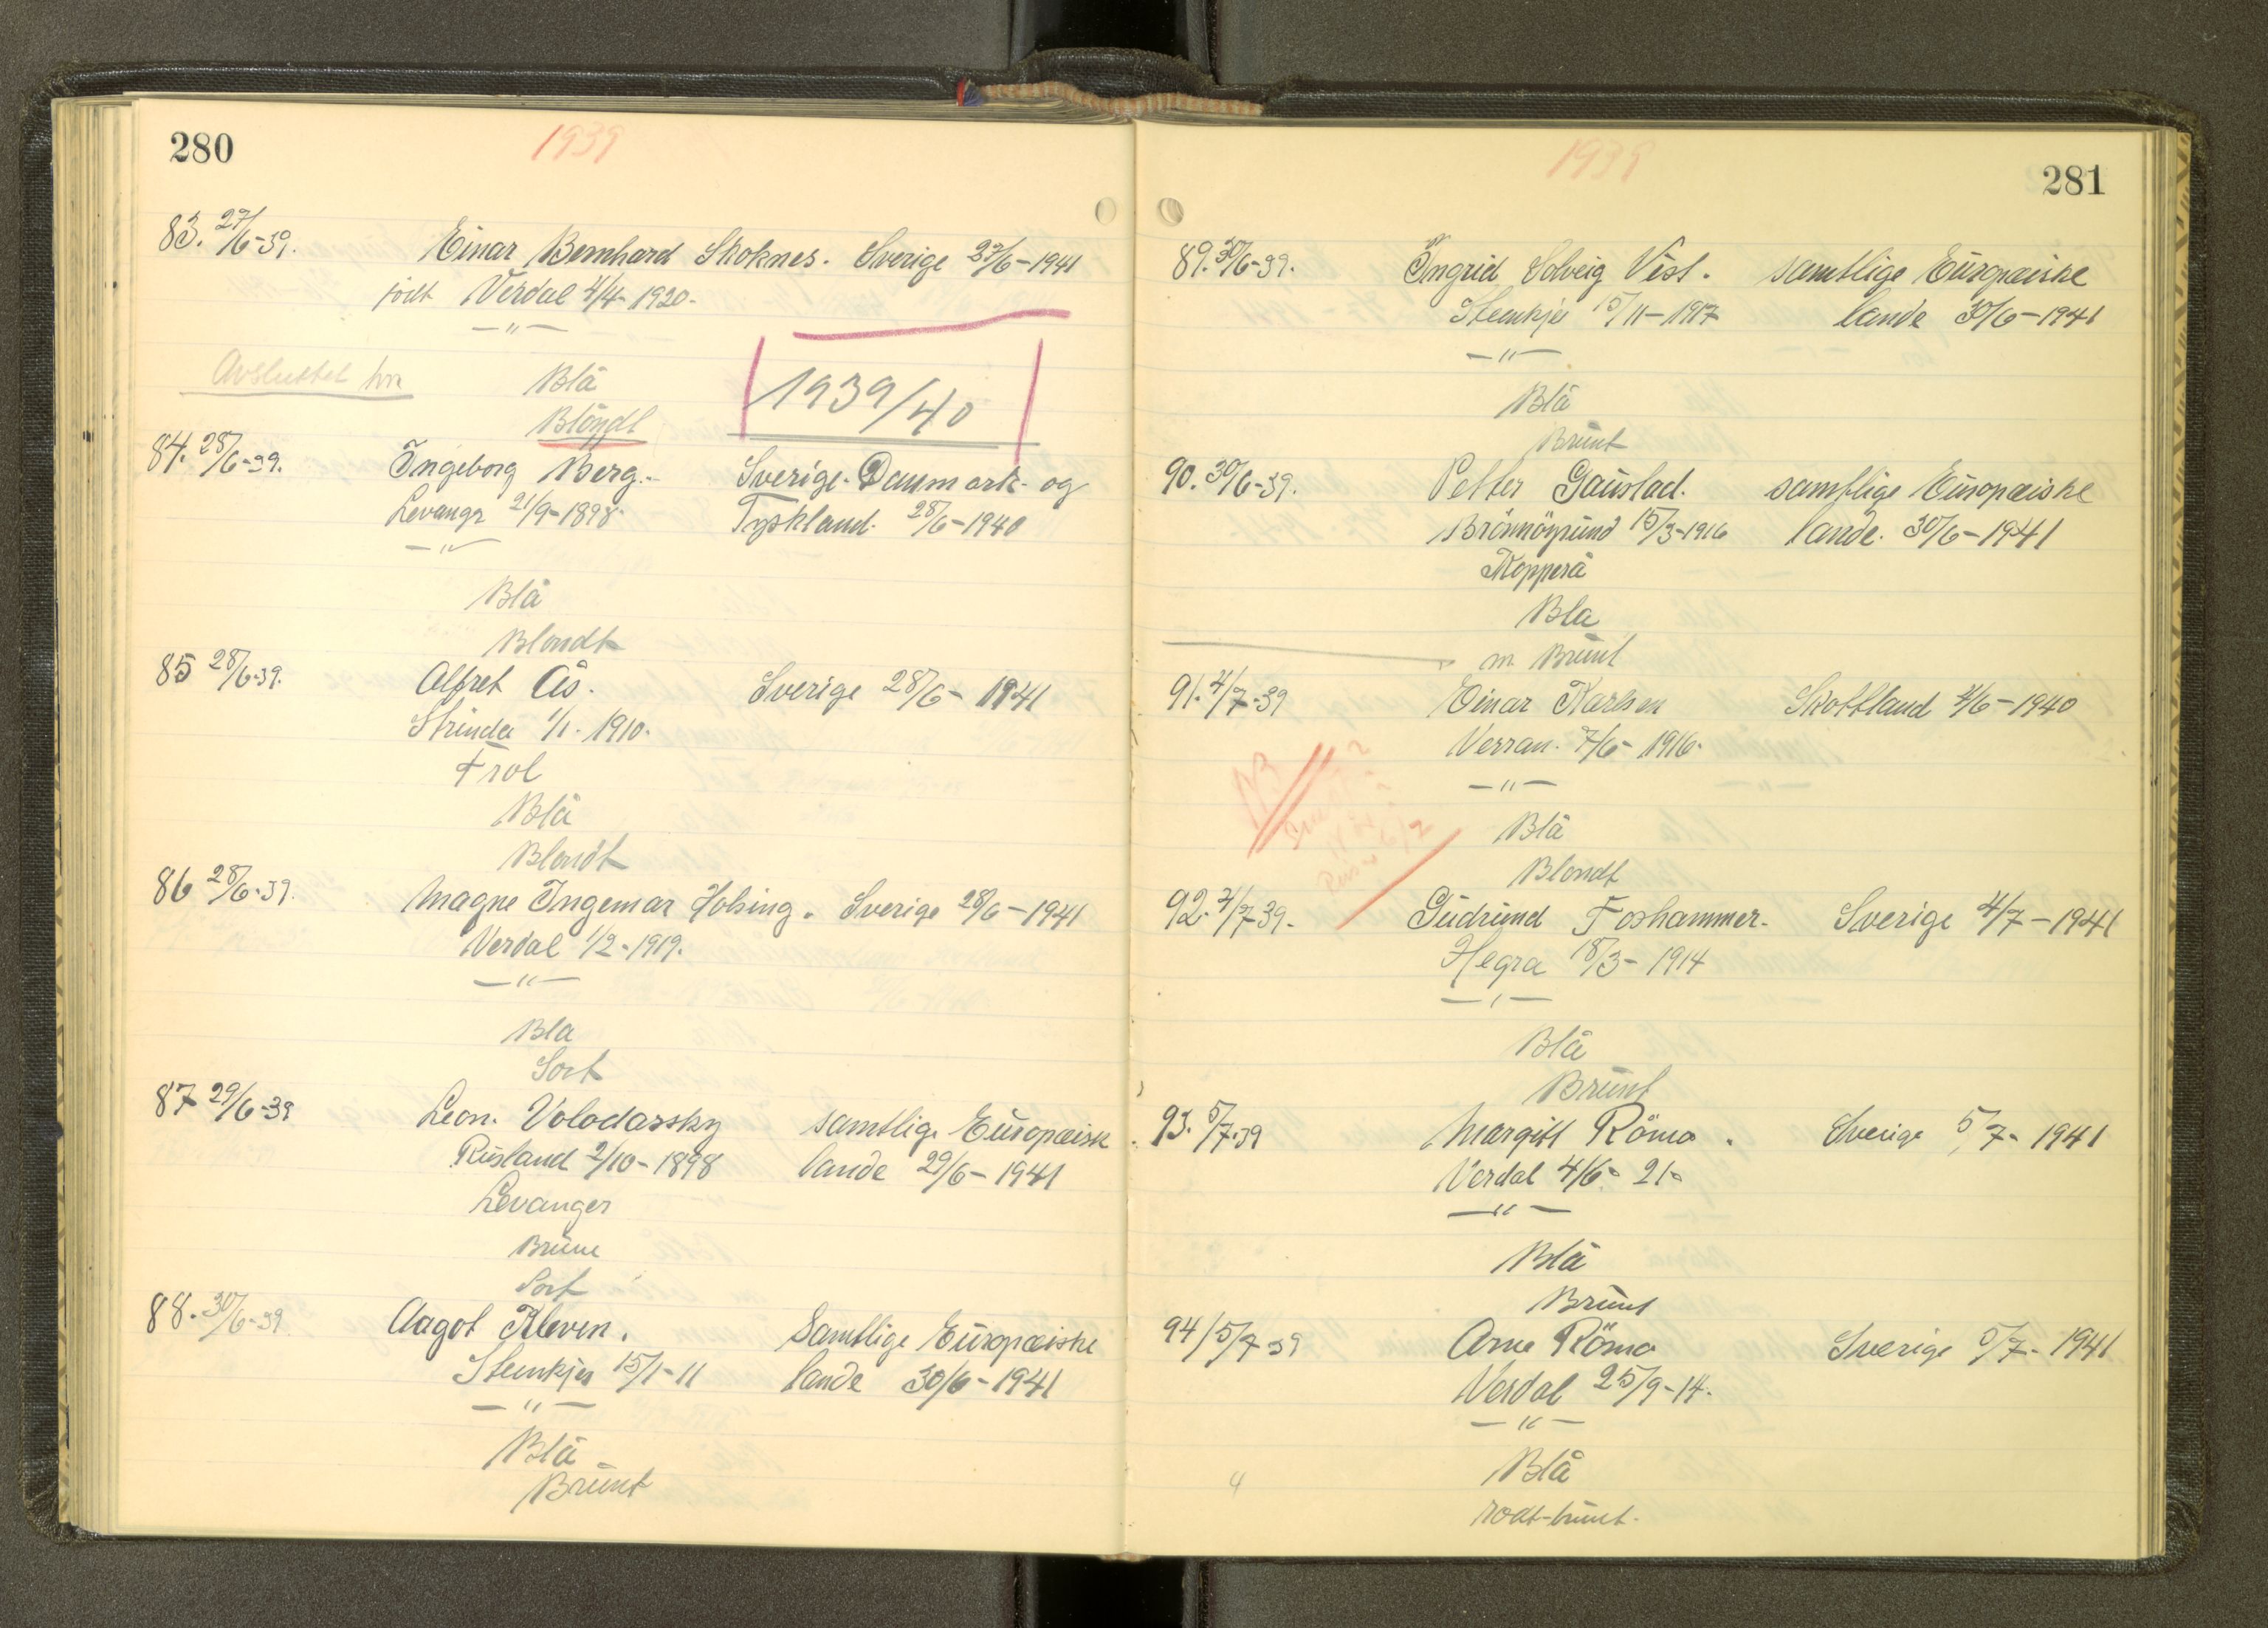 280
1939
83. 27/6-39. Einar Bernhard Skoknes. Sverige 27/6-1941
født Verdal 4/4-1920.
—"—
Avsluttet her
Blå
1939/40
Blondt
84. 28/6-39. Ingeborg Berg. Sverige. Danmark. og
Levangr 21/9-1898. Tyskland. 28/6-1940
—"—
Blå
Blondt
85 28/6-39. Alfret Ås. Sverige 28/6-1941
Strinda 1/1-1910.
Frol
Blå
Blondt
86 28/6-39. Magne Ingemar Holsing. Sverige 28/6-1941
Verdal 1/2-1919.
—"—
Bla
Sort
87 29/6-39 Leon. Volodarsky samtlige Europæisk
Rusland 2/10-1898 lande 29/6-1941
Levanger
Brune
Sort
88. 30/6-39. Aagot Kleven. Samtlige Europæiske
Steinkjer 15/1-11 lande 30/6-1941
—"—
Blå
Brunt
1939
281
89. 30/6-39. Ingrid Solveig Vist. samtlige Europæiske
Steinkjer 15/11-1917 lande 30/6-1941
—"—
Blå
Brunt
90. 30/6-39. Petter Gauslad. samtlige Europæiske
Brönnöysund 15/3-1916 lande. 30/6-1941
Kopperå
Bla
m Brunt
91. 4/7-39 Einar Karlsen Skottland 4/6-1940
Verran. 7/6-1916.
—"—
NB
Blå
Blondt
92. 4/7-39. Gudrund Foshammer. Sverige 4/7-1941
Hegra 18/3-1914
—"—
Blå
Brunt
93. 5/7-39 Margitt Römo. Sverige 5/7-1941
Verdal 4/6-21.
—"—
Blå
Brunt
94/5/7-39 Arne Römo Sverige 5/7-1941
Verdal 25/9-14.
—"—
Blå
4
rodt-brunt.